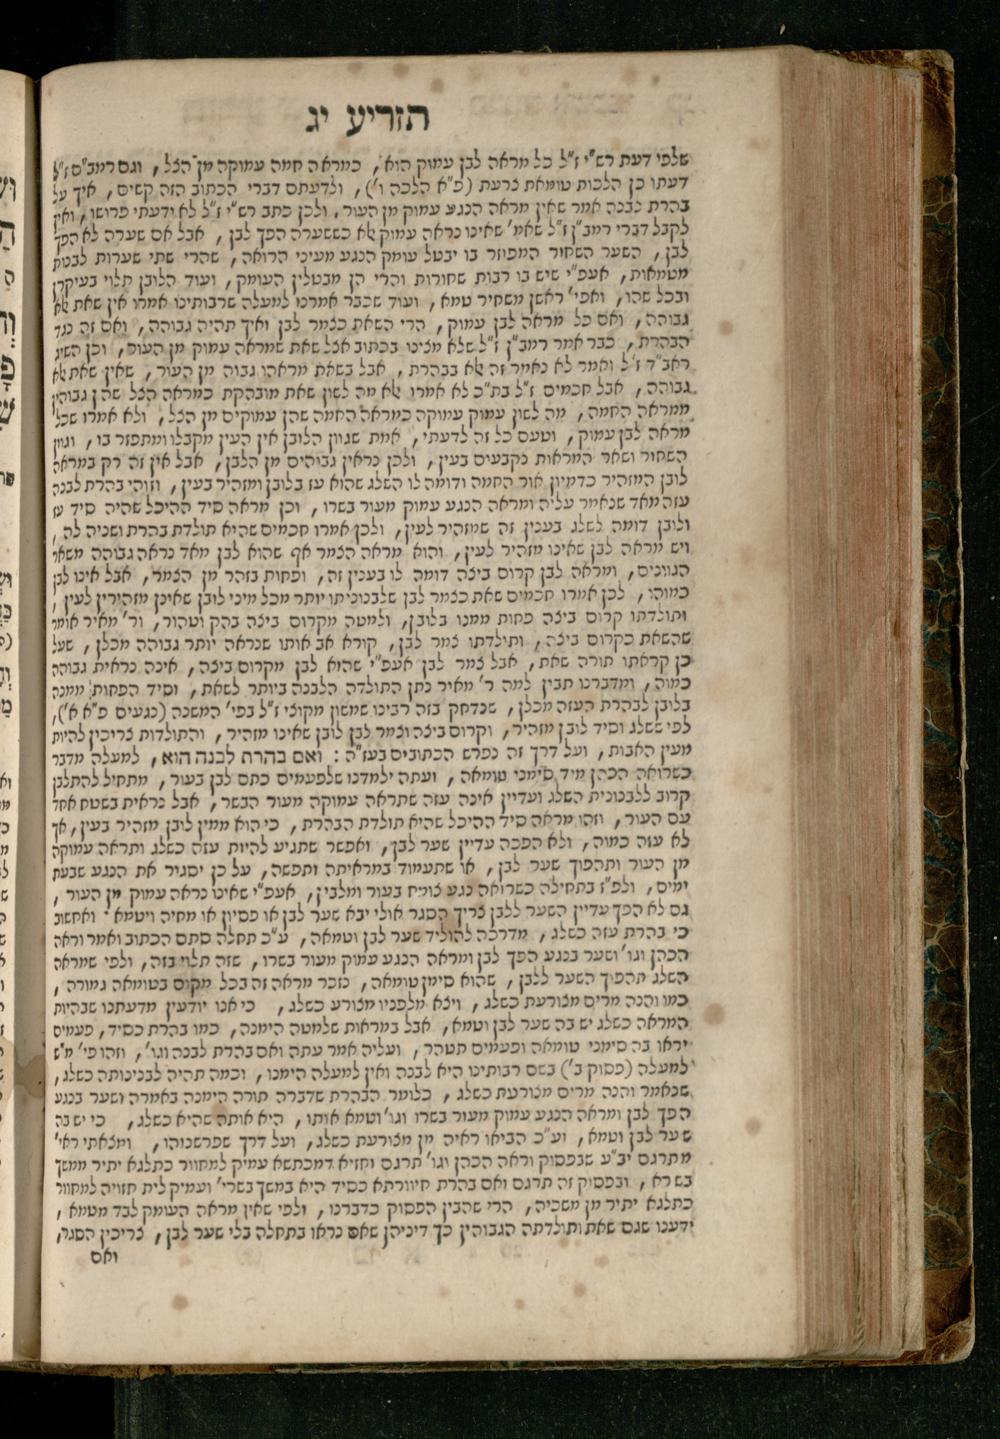 תזריע יג
שלפי דעת רש"י ז"ל כל מראה לבן עמוק הוא, כמראה חמה עמוקה מן הצל, וגם רמב"ם ז"ל
דעתו כן הלכות טומאת צרעת (פ"א הלכה ו'), ולדעתם דברי הכתוב הזה קשים, איך על
בהרת לבנה אמר שאין מראה הנגע עמוק מן העור, ולכן כתב רש"י ז"ל לא ידעתי פרושו, ואין
לקבל דברי רמב"ן ז"ל שאמ' שאינו נראה עמוק אלא כששערה הפך לבן, אבל אם שערה לא הפך
לבן, השער השחור המפוזר בו יבטל עומק הנגע מעיני הרואה, שהרי שתי שערות לבנות
מטמאות, אעפ"י שיש בו רבות שחורות והרי הן מבטלין העומק, ועוד הלובן תלוי בעיקרן
ובכל שהו, ואפי' ראשן משחיר טמא, ועוד שכבר אמרנו למעלה שרבותינו אמרו אין שאת אלא
גבוהה, ואם כל מראה לבן עמוק, הרי השאת כצמר לבן ואיך תהיה גבוהה, ואם זה נגד
הבהרת, כבר אמר רמב"ן ז"ל שלא מצינו בכתוב אצל שאת שמראה עמוק מן העור, וכן השיג
ראב"ד ז"ל ואמר לא נאמר זה אלא בבהרת, אבל בשאת מראהו גבוה מן העור, שאין שאת אלא
גבוהה, אבל חכמים ז"ל בת"כ לא אמרו אלא מה לשון שאת מובהקת כמראה הצל שהן גבוהין
ממראה החמה, מה לשון עמוק עמוקה כמראה החמה שהן עמוקים מן הצל, ולא אמרו שכל
מראה לבן עמוק, וטעם כל זה לדעתי, אמת שגוון הלובן אין העין מקבלו ומתפזר בו, וגוון
השחור ושאר המראות נקבעים בעין, ולכן נראין גבוהים מן הלבן, אבל אין זה רק במראה
לובן המזהיר כדמיון אור החמה ודומה לו השלג שהוא עז בלובן ומזהיר בעין, וזוהי בהרת לבנה
עזה מאד שנאמר עליה ומראה הנגע עמוק מעור בשרו, וכן מראה סיד ההיכל שהיה סיד עז
ולובן דומה לשלג בענין זה שמזהיר לעין, ולכן אמרו חכמים שהיא תולדת בהרת ושניה לה,
ויש מראה לבן שאינו מזהיר לעין, והוא מראה הצמר אף שהוא לבן מאד נראה גבוהה משאר
הגוונים, ומראה לבן קרום ביצה דומה לו בענין זה, ופחות בזהר מן הצמר, אבל אינו לבן
כמוהו, לכן אמרו חכמים שאת כצמר לבן שלבנוניתו יותר מכל מיני לובן שאינן מזהירין לעין,
ותולדתו קרום ביצה פחות ממנו בלובן, ולמטה מקרום ביצה בהק וטהור, ור' מאיר אומר
שהשאת כקרום ביצה, ותולדתו צמר לבן, קורא אב אותו שנראה יותר גבוהה מכלן, שעל
כן קראתו תורה שאת, אבל צמר לבן אעפ"י שהוא לבן מקרום ביצה, אינה נראית גבוהה
כמוה, ומדברנו תבין למה ר' מאיר נתן התולדה הלבנה ביותר לשאת, וסיד הפחות ממנה
בלובן לבהרת העזה מכלן, שנדחק בזה רבינו שמשון מקוצי ז"ל בפי' המשנה (נגעים פ"א א'),
לפי ששלג וסיד לובן מזהיר, וקרום ביצה וצמר לבן לובן שאינו מזהיר, והתולדות צריכין להיות
מעין האבות, ועל דרך זה נפרש הכתובים בעז"ה: ואם בהרת לבנה הוא, למעלה מדבר
כשרואה הכהן מיד סימני טומאה, ועתה ילמדנו שלפעמים כתם לבן בעור, מתחיל להתלבן
קרוב ללבנונית השלג ועדיין אינה עזה שתראה עמוקה מעור הבשר, אבל נראית בשטח אחד
עם העור, וזהו מראה סיד ההיכל שהיא תולדת הבהרת, כי הוא ממין לובן מזהיר בעין, אך
לא עזה כמוה, ולא הפכה עדיין שער לבן, ואפשר שתגיע להיות עזה כשלג ותראה עמוקה
מן העור ותהפוך שער לבן, או שתעמוד במראיתה ותפשה, על כן יסגיר את הנגע שבעת
ימים, ולפ"ז בתחילה כשרואה נגע צומח בעור ומלבין, אעפ"י שאינו נראה עמוק מן העור,
גם לא הפך עדיין השער ללבן צריך הסגר אולי יבא שער לבן או פסיון או מחיה ויטמא. ואחשוב
כי בהרת עזה כשלג, מדרכה להוליד שער לבן וטמאה, ע"כ תחלה סתם הכתוב ואמר וראה
הכהן וגו' ושער בנגע הפך לבן ומראה הנגע עמוק מעור בשרו, שזה תלוי בזה, ולפי שמראה
השלג תהפוך השער ללבן, שהוא סימן טומאה, נזכר מראה זה בכל מקום בטומאה גמורה,
כמו והנה מרים מצורעת כשלג, ויצא מלפניו מצורע כשלג, כי אנו יודעין מדעתנו שבהיות
המראה כשלג יש בה שער לבן וטמא, אבל במראות שלמטה הימנה, כמו בהרת כסיד, פעמים
יראו בה סימני טומאה ופעמים תטהר, ועליה אמר עתה ואם בהרת לבנה וגו', וזהו פי' מ"ש
למעלה (פסוק ב') בשם רבותינו היא לבנה ואין למעלה הימנו, וכמה תהיה לבנינותה כשלג,
שנאמר והנה מרים מצורעת כשלג, כלומר הבהרת שדברה תורה הימנה באמרה ושער בנגע
הפך לבן ומראה הנגע עמוק מעור בשרו וגו' וטמא אותו, היא אותה שהיא כשלג, כי יש בה
שער לבן וטמא, וע"כ הביאו ראיה מן מצורעת כשלג, ועל דרך שפרשנוהו, ומצאתי ראי'
מתרגם יב"ע שבפסוק וראה הכהן וגו' תרגם וחזיא דמכתשא עמיק למחוור כתלגא יתיר ממשך
בשרא, ובפסוק זה תרגם ואם בהרת חיוורתא כסיד היא במשך בשרי' ועמיק לית חזויה למחוור
כתלגא יתיר מן משכיה, הרי שהבין הפסוק כדברנו, ולפי שאין מראה העומק לבד מטמא,
ידענו שגם שאת ותולדתה הגבוהין כך דיניהן שאם נראו בתחלה בלי שער לבן, צריכין הסגר,
ואם